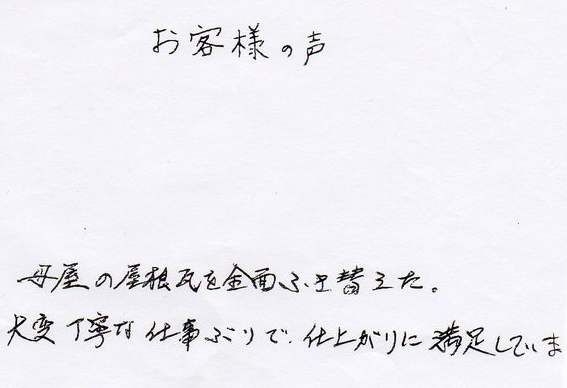 お客様の声
母屋の屋根瓦を全面ふき替えた。
大変丁寧な仕事ぶりで、仕上がりに満足していま